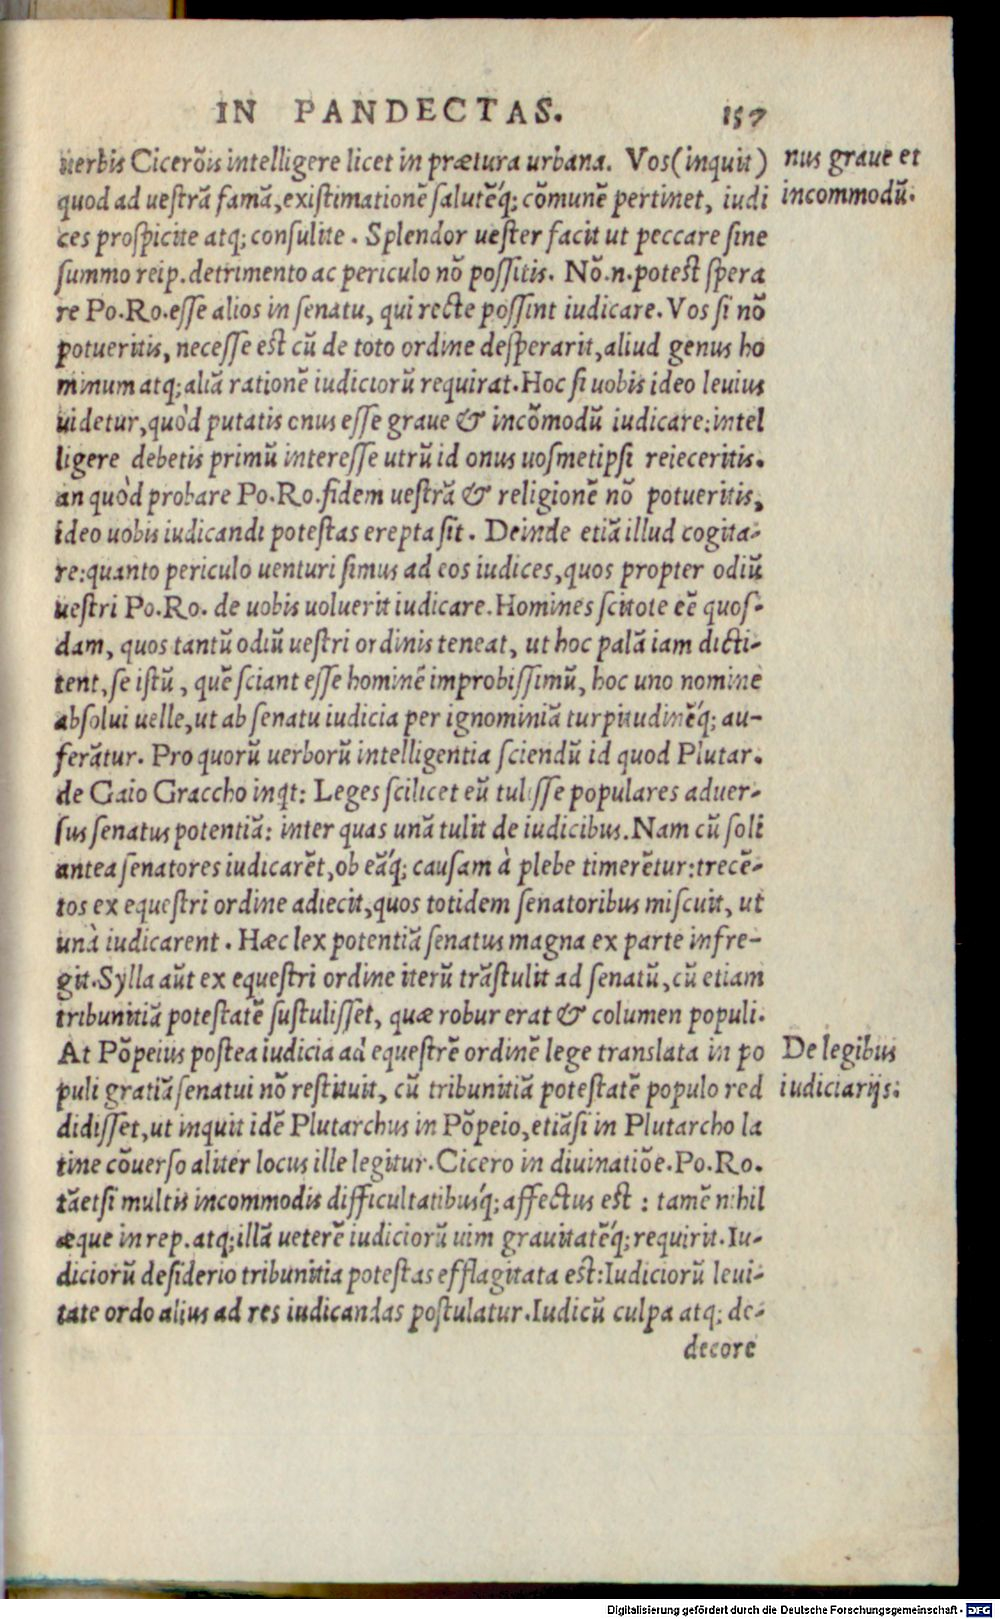 IN PANDECTAS. 157
uerbis Cicerõis intelligere licet in prætura urbana. Vos (inquit)
quod ad uestrã famã, existimationẽ salutẽq́; cõmunẽ pertinet, iudi
ces prospicite atq; consulite. Splendor uester facit ut peccare sine
summo reip. detrimento ac periculo nõ possitis. Nõ.n. potest spera
re Po.Ro. esse alios in senatu, qui recte possint iudicare. Vos si nõ
potueritis, necesse est cũ de toto ordine desperarit, aliud genus ho
minum atq; aliã rationẽ iudiciorũ requirat. Hoc si uobis ideo leuius
uidetur, quòd putatis onus esse graue & incõmodũ iudicare: intel
ligere debetis primũ interesse utrũ id onus uosmetipsi reieceritis.
an quòd probare Po.Ro. fidem uestrã & religionẽ nõ potueritis,
ideo uobis iudicandi potestas erepta sit. Deinde etiã illud cogita-
re: quanto periculo uenturi simus ad eos iudices, quos propter odiũ
uestri Po.Ro. de uobis uoluerit iudicare. Homines scitote eẽ quos-
dam, quos tantũ odiũ uestri ordinis teneat, ut hoc palã iam dicti-
tent, se istũ, quẽ sciant esse hominẽ improbissimũ, hoc uno nomine
absolui uelle, ut ab senatu iudicia per ignominiã turpitudinẽq́; au-
ferãtur. Pro quorũ uerborũ intelligentia sciendũ id quod Plutar.
de Gaio Graccho inqt: Leges scilicet eũ tulisse populares aduer-
sus senatus potentiã: inter quas unã tulit de iudicibus. Nam cũ soli
antea senatores iudicarẽt, ob eãq́; causam à plebe timerẽtur: trecẽ-
tos ex equestri ordine adiecit, quos totidem senatoribus miscuit, ut
unà iudicarent. Hæc lex potentiã senatus magna ex parte infre-
git. Sylla aũt ex equestri ordine iterũ trãstulit ad senatũ, cũ etiam
tribunitiã potestatẽ sustulisset, quæ robur erat & columen populi.
At Põpeius postea iudicia ad equestrẽ ordinẽ lege translata in po
puli gratiã senatui nõ restituit, cũ tribunitiã potestatẽ populo red
didisset, ut inquit idẽ Plutarchus in Põpeio, etiãsi in Plutarcho la
tine cõuerso aliter locus ille legitur. Cicero in diuinatiõe. Po. Ro.
tãetsi multis incommodis difficultatibusq́; affectus est: tamẽ nihil
æque in rep. atq; illã ueterẽ iudiciorũ uim grauitatẽq́; requirit. Iu-
diciorũ desiderio tribunitia potestas efflagitata est: Iudiciorũ leui-
tate ordo alius ad res iudicandas postulatur. Iudicũ culpa atq; de-
decore
nus graue et
incommodũ.
De legibus
iudiciarijs.
Digitalisierung gefördert durch die Deutsche Forschungsgemeinschaft - DFG